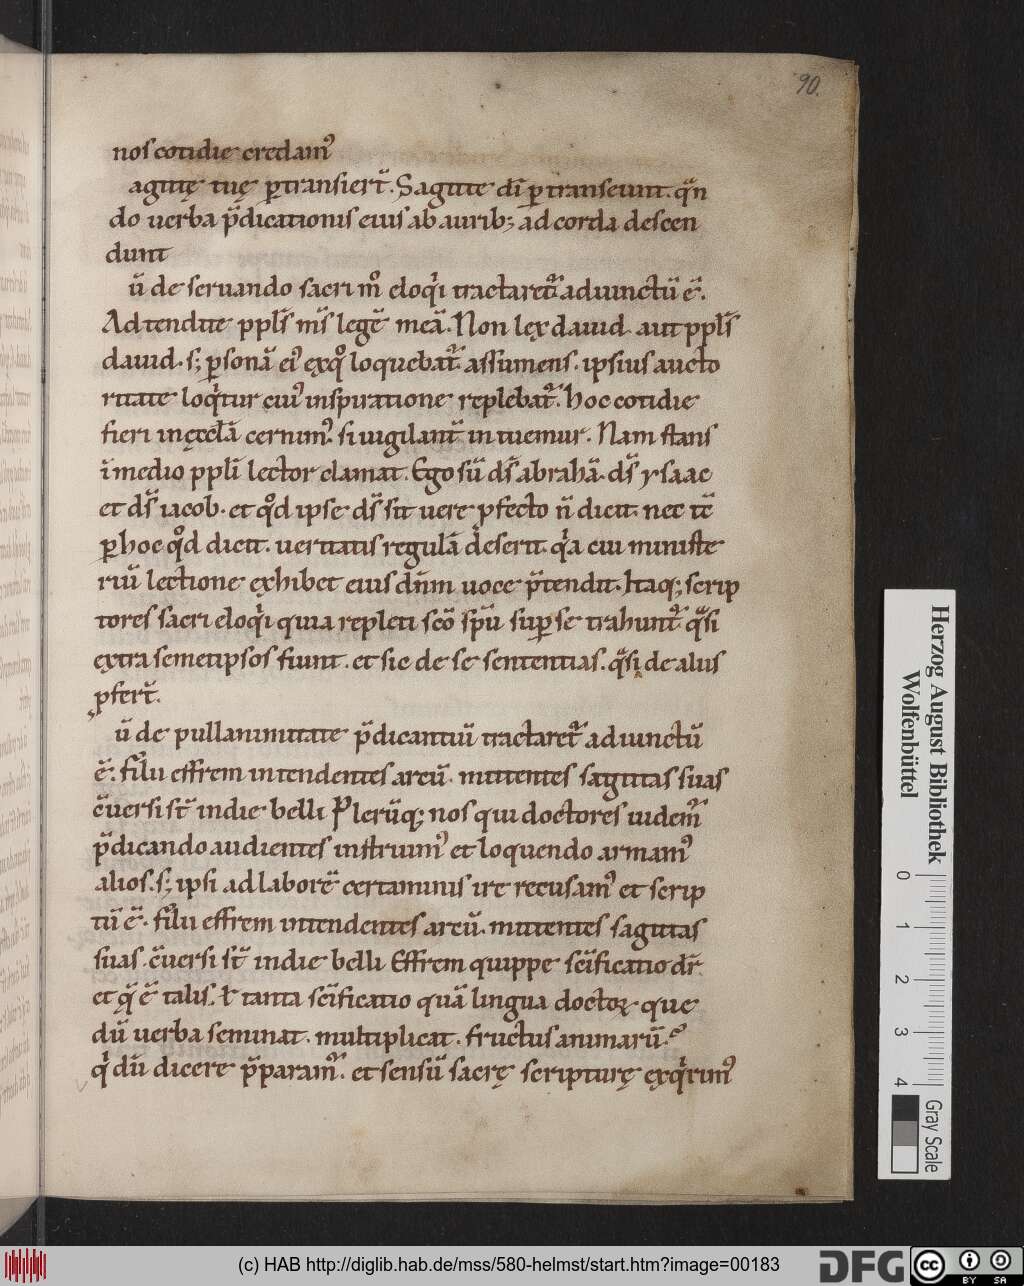 90.
nos cotidie credam᷒
agittę tuę ꝑtransier̄t. Sagitte dī ꝑ transeunt. qn̄
do uerba p̄dicationis eius ab aurib; ad corda descen
dunt
ū de seruando sacri mō eloqͥi tractaret᷑ adiunctū ē.
Adtendite ppl̄s ms̄ legē meā. Non lex dauid aut ppl̄s
dauid. s; ꝑsonā ei᷒ ex qͦ loquebat᷑ assumens. ipsius aucto
ritate loqͥtur cui᷒ inspiratione replebat᷑. hoc cotidie
fieri in ęccl̄a cernim᷒. si uigilant̄ intuemur. Nam stans
ī medio ppl̄i lector clamat. Ego sū ds̄ abrahā. ds̄ ysaac
et ds̄ iacob. et qͦd ipse ds̄ sit uere ꝓfecto n̄ dicit. nec tē
ꝑ hoc qͦd dicit. ueritatis regulā deserit. qͥa cui ministe
riū lectione exhibet eius dn̄m uoce p̄tendit. Itaq; scrip
tores sacri eloqͥi quia repleti scō sp̄u suꝑ se trahunt᷑ qͣsi
extra semetipsos fiunt. et sic de se sententias. qͣsi de aliis
ꝓfer̄t.
ū de pusillanimitate p̄dicantiū tractaret᷑ adiunctū
ē. filii effrem intendentes arcū. mittentes sagittas suas
c̄uersi st̄ in die belli Plerūq; nos qui doctores uidem᷑
p̄dicando audientes instruim᷒ et loquendo armam᷒
alios. s; ipsi ad laborē certaminis ire recusam᷒ et scrip
tū ē. filii effrem intendentes arcū. mittentes sagittas
suas. c̄uersi st̄ in die belli Effrem quippe sc̄ificatio dr̄
et q̄ ē talis. ł tanta sc̄ificatio quā lingua doctoꝝ que
dū uerba seminat. multiplicat. fructus animarū.
qͥ dū dicere p̄param᷑. et sensū sacrę scripturę exqͥrim᷒
Herzog August Bibliothek
Wolfenbüttel
0 1 2 3 4
Gray Scale
(c) HAB http://diglib.hab.de/mss/580-helmst/start.htm?image=00183
DFG
cc BY SA